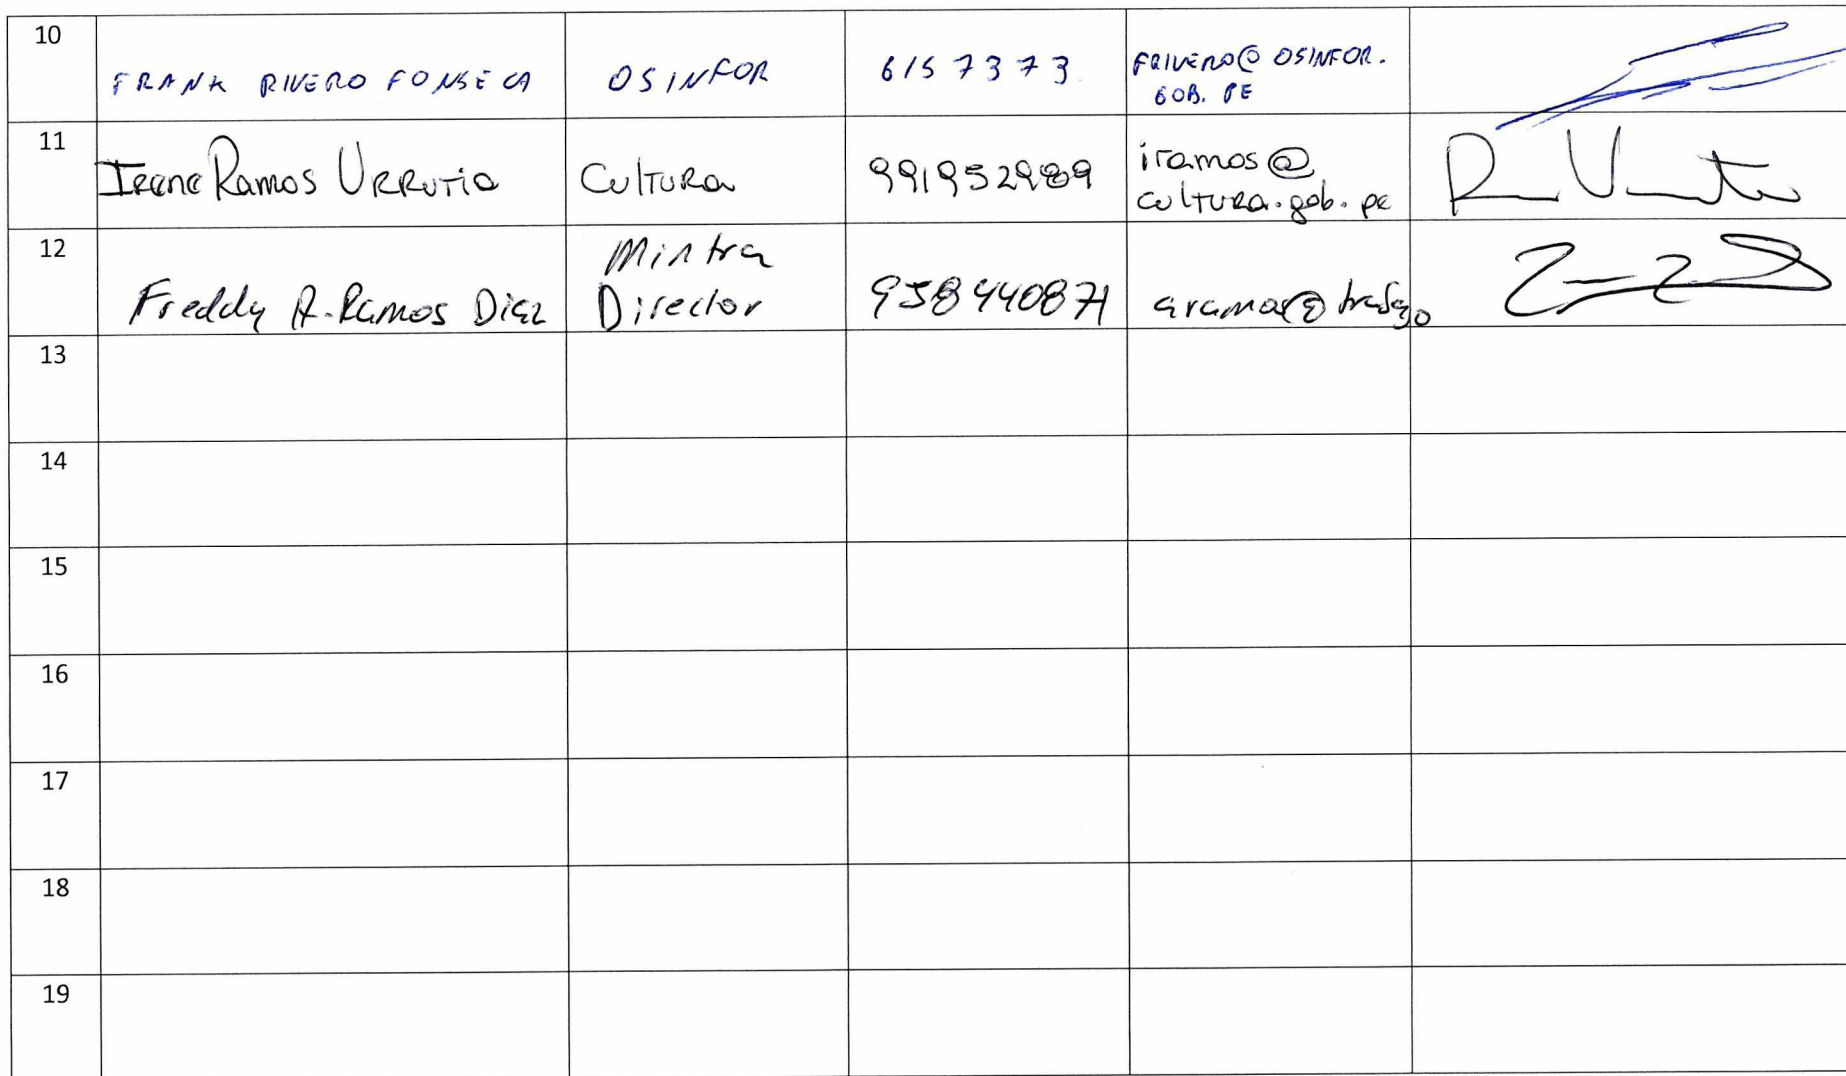 10
FRANK RIVERO FONSECA
OSINFOR
6157373
FRIVERO@OSINFOR.
GOB.PE
11
Irene Ramos Urrutia
Cultura
991952989
iramos@
cultura.gob.pe
12
Freddy A. Ramos Diaz
Mintra
Director
958440871
13
14
15
16
17
18
19